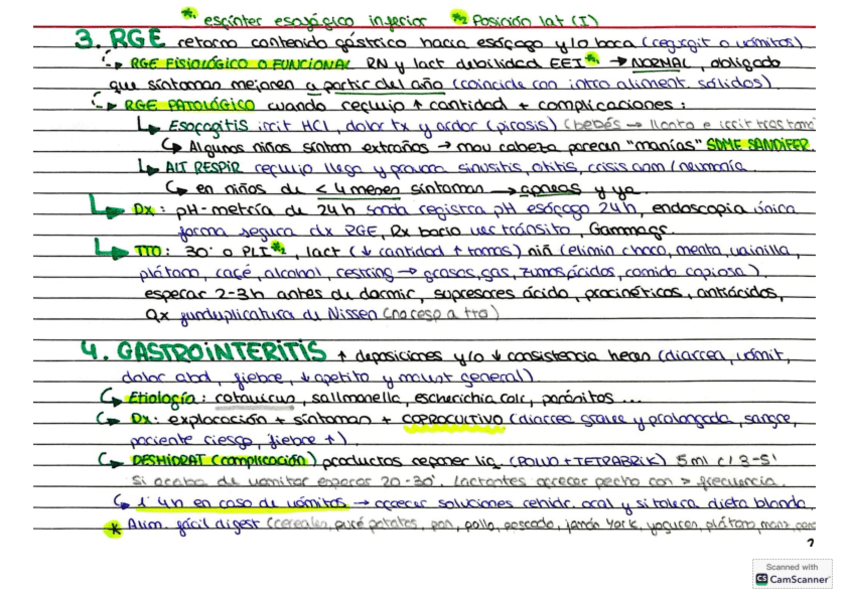 *1 esfínter esofágico inferior *2 Posición lat (I)
3. RGE retorno contenido gástrico hacia esófago y/o boca (regurgit o vómitos)
RGE FISIOLÓGICO O FUNCIONAL RN y lact debilidad EEI *1 → NORMAL, obligado
que síntomas mejoren a partir del año (coincide con intro aliment. sólidos)
RGE PATOLÓGICO cuando reflujo ↑ cantidad + complicaciones:
Esofagitis irrit HCl, dolor tx y ardor (pirosis) (bebés → llanto e irrit tras toma
Algunos niños síntom extraños → mov cabeza parecen "manías" SDME SANDIFER.
ALT RESPIR reflujo llega y provoca sinusitis, otitis, crisis asm / neumonía.
en niños de < 4 meses síntomas → apneas y ya.
Dx: pH-metría de 24h sonda registra pH esófago 24h, endoscopia única
forma segura dx RGE, Rx bario ver tránsito, Gammagr.
TTO: 30° o PLI *2, lact (↓ cantidad ↑ tomas) niñ (elimin choco, menta, vainilla,
plátano, café, alcohol, restring → grasas, gas, zumos ácidos, comida copiosa)
esperar 2-3h antes de dormir, supresores ácido, procinéticos, antiácidos,
Qx funduplicatura de Nissen (no resp a tto)
4. GASTROINTERITIS ↑ deposiciones y/o ↓ consistencia heces (diarrea, vómit,
dolor abd, fiebre, ↓ apetito y malest general).
Etiología: rotavirus, sallmonella, escherichia coli, parásitos ...
Dx: exploración + síntomas + COPROCULTIVO (diarrea grave y prolongada, sangre,
paciente riesgo, fiebre +).
DESHIDRAT (complicación) productos reponer liq (POLVO + TETRABRIK) 5ml c/ 3-5'
Si acaba de vomitar esperar 20-30'. Lactantes ofrecer pecho con > frecuencia.
1ª 4h en caso de vómitos → ofrecer soluciones rehidr. oral y si tolera dieta blanda.
* Alim. fácil digest (cereales, puré patatas, pan, pollo, pescado, jamón York, yogures, plátano, manz
2
Scanned with
CS CamScanner